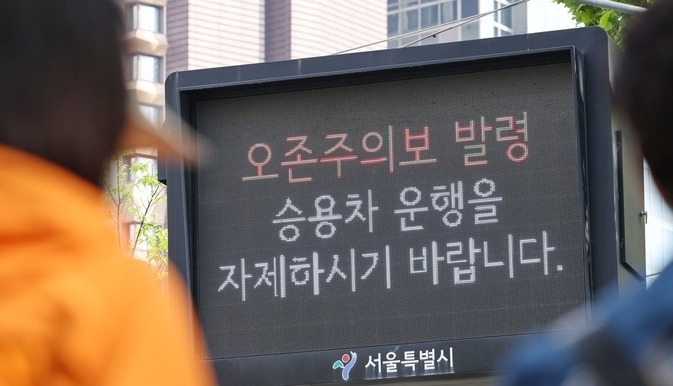 오존주의보 발령
승용차 운행을
자제하시기 바랍니다.
서울특별시